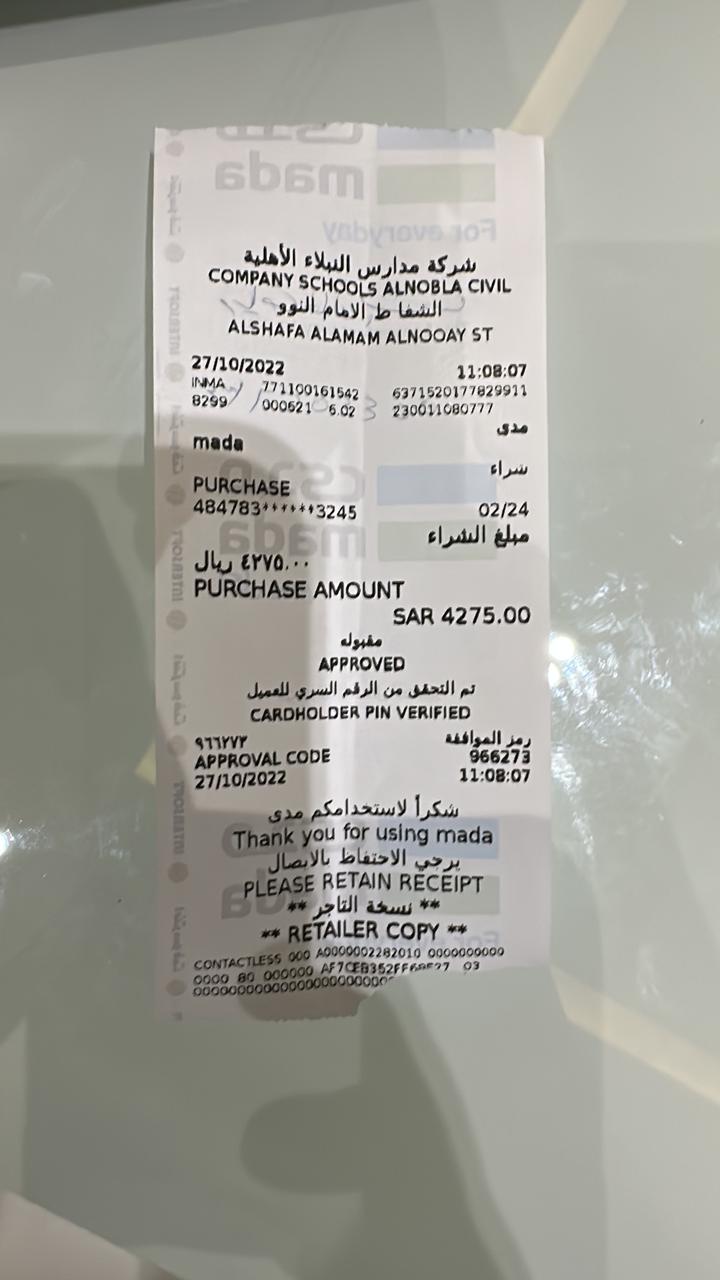 شركة مدارس النبلاء الأهلية
COMPANY SCHOOLS ALNOBLA CIVIL
الشفا ط الامام النوو
ALSHAFA ALAMAM ALNOOAY ST
27/10/2022 11:08:07
INMA 771100161542 6371520177829911
8299 000621 6.02 230011080777
مدى
mada
شراء
PURCHASE
484783******3245 02/24
مبلغ الشراء
٤٢٧٥.٠٠ ريال
PURCHASE AMOUNT
SAR 4275.00
مقبوله
APPROVED
تم التحقق من الرقم السري للعميل
CARDHOLDER PIN VERIFIED
رمز الموافقة ٩٦٦٢٧٣
APPROVAL CODE 966273
27/10/2022 11:08:07
شكراً لاستخدامكم مدى
Thank you for using mada
يرجي الاحتفاظ بالايصال
PLEASE RETAIN RECEIPT
** نسخة التاجر **
** RETAILER COPY **
CONTACTLESS 000 A0000002282010 0000000000
0000 80 000000 03